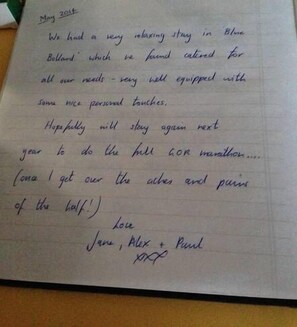 May 2014.
We had a very relaxing stay in 'Blue
Bollard' which we found catered for
all our needs - very well equipped with
some nice personal touches.
Hopefully will stay again next
year to do the full LOR marathon....
(once I get over the aches and pains
of the half!)
Love
Jane, Alex + Paul
xxx